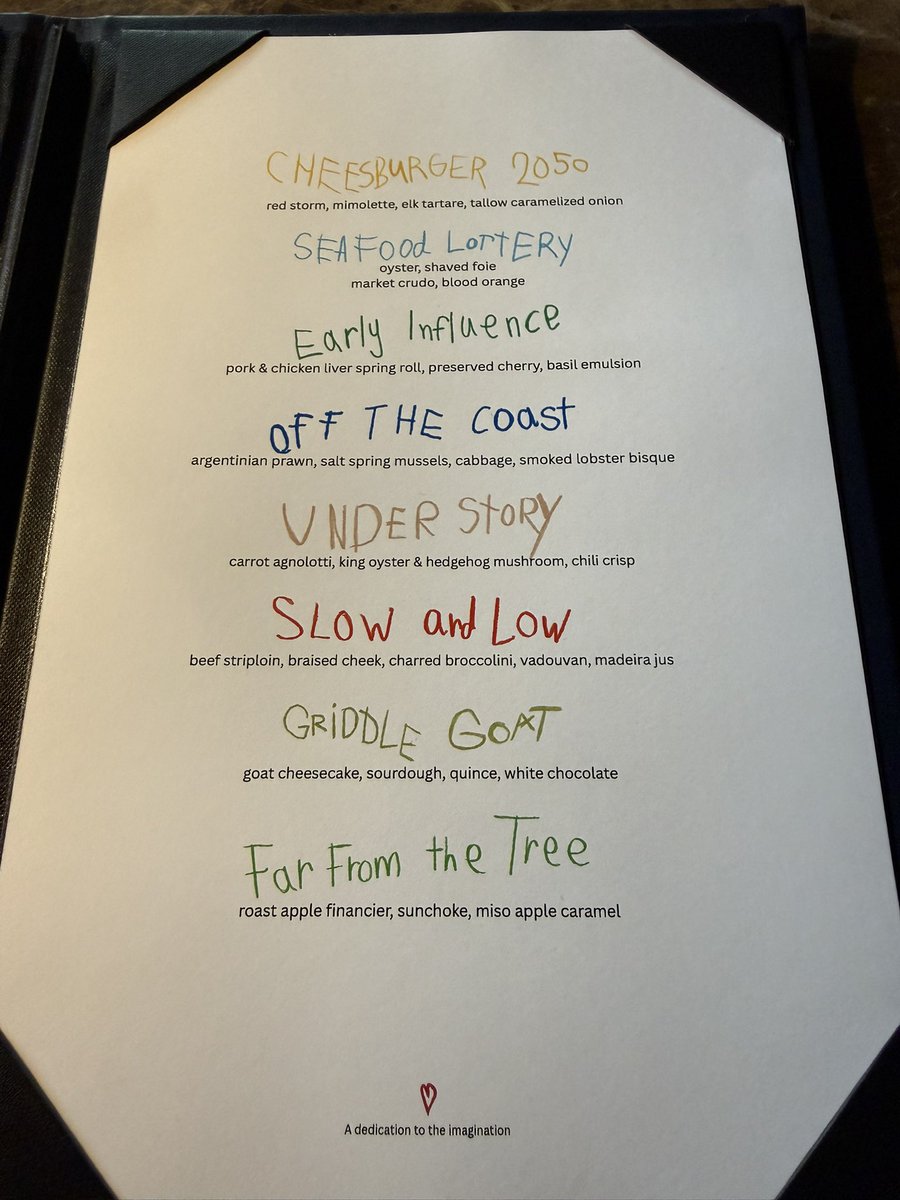 CHEESBURGER 2050
red storm, mimolette, elk tartare, tallow caramelized onion
SEAFood LoTTERY
oyster, shaved foie
market crudo, blood orange
Early Influence
pork & chicken liver spring roll, preserved cherry, basil emulsion
OFF THE Coast
argentinian prawn, salt spring mussels, cabbage, smoked lobster bisque
UNDER StoRY
carrot agnolotti, king oyster & hedgehog mushroom, chili crisp
SLOW and LOW
beef striploin, braised cheek, charred broccolini, vadouvan, madeira jus
GRiDDLE GOAT
goat cheesecake, sourdough, quince, white chocolate
Far From the Tree
roast apple financier, sunchoke, miso apple caramel
A dedication to the imagination